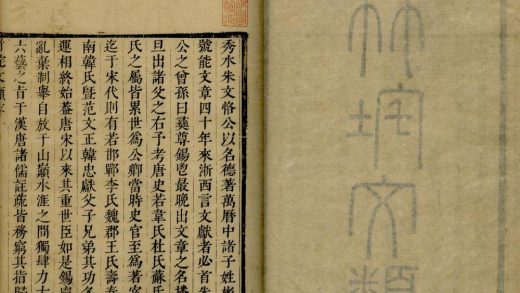 竹垞文類
秀水朱文恪公以名德著萬曆中諸子姓彬
號能文章四十年來浙西言文獻者必首朱
公之曾孫曰彝尊錫鬯最晚出文章之名播
旦出諸父之右予考唐史若韋氏杜氏蘇氏
氏之屬皆累世爲公卿當時史官至爲著宰
迄于宋代則有若邯鄲李氏魏郡王氏壽春
南韓氏曁范文正韓忠獻父子兄弟其功名
運相終始葢唐宋以來其重世臣如是錫鬯
亂棄制舉自放于山巓水涯之間獨肆力古
六藝之旨于漢唐諸儒註疏皆務窮其指歸